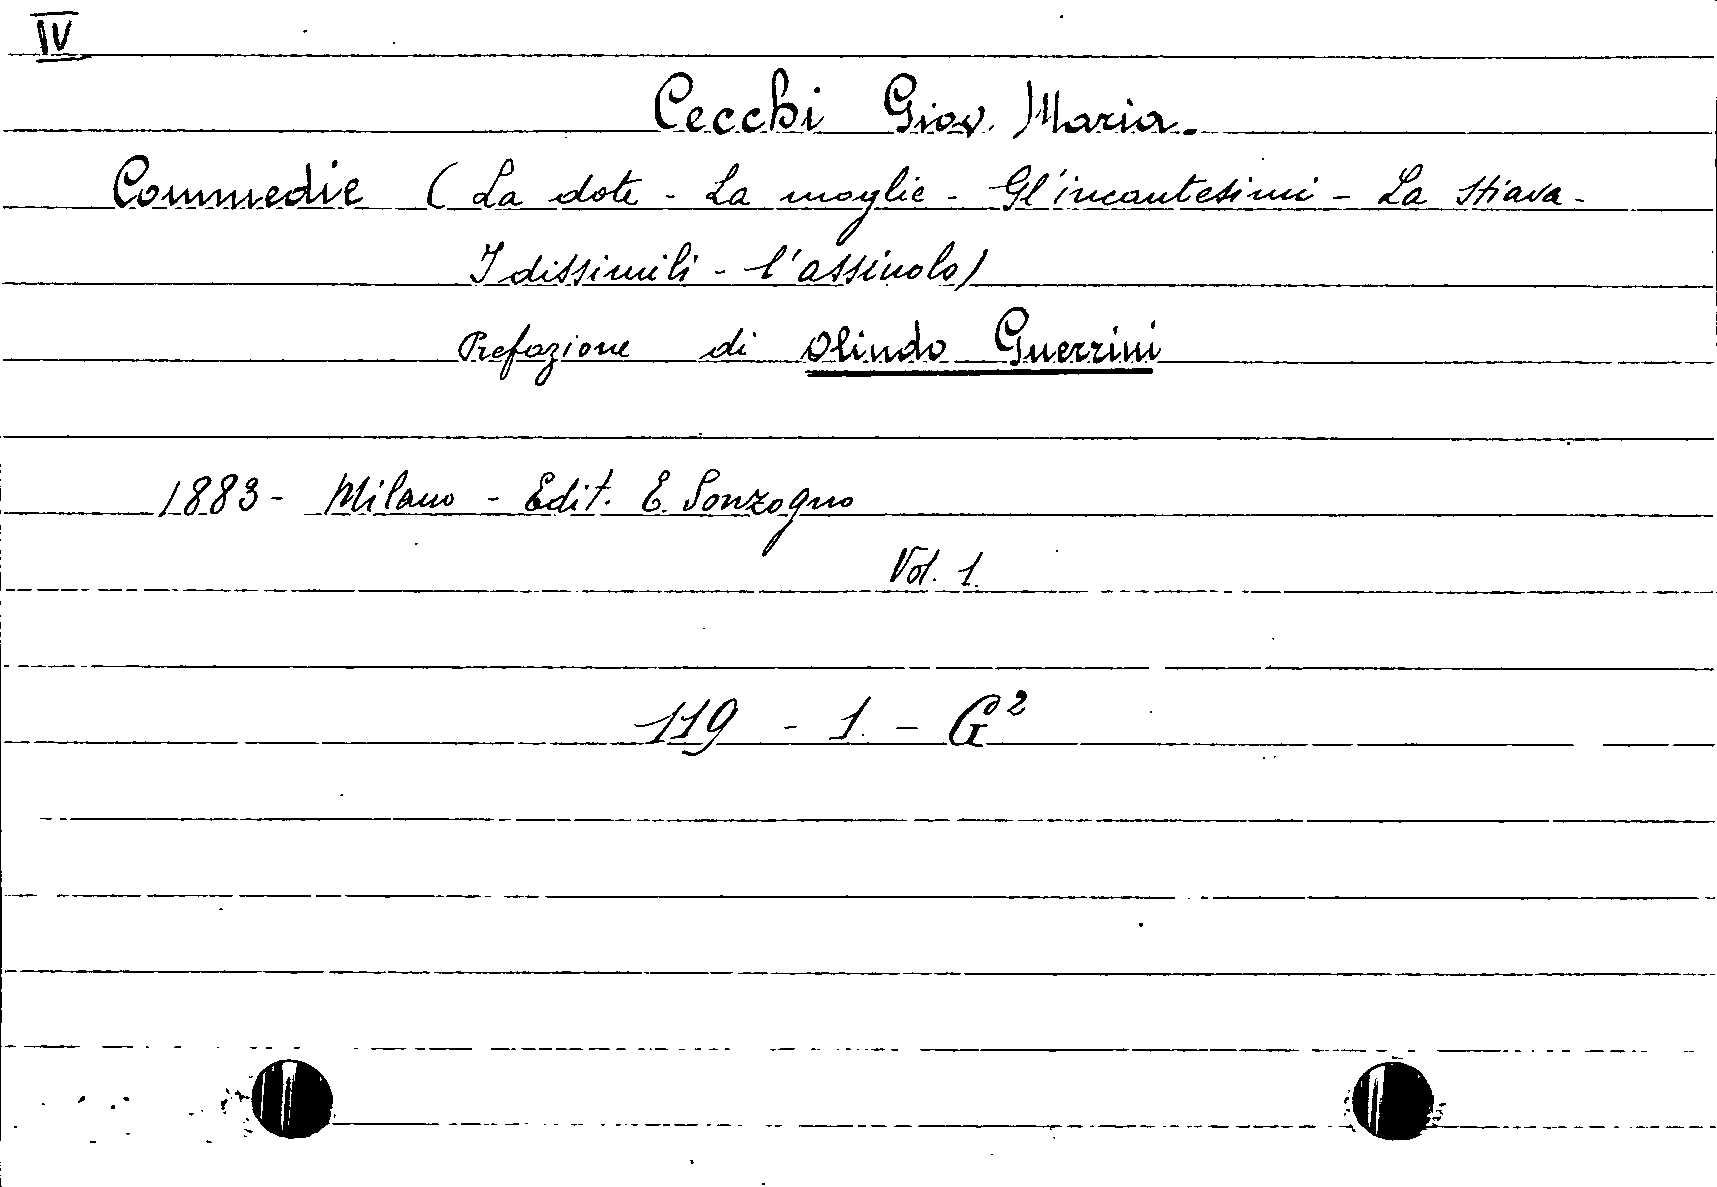 IV
Cecchi Giov. Maria.
Commedie (La dote - La moglie - Gl'incantesimi - La stiava -
I dissimili - l'assinolo)
Prefazione di Olindo Guerrini
1883 - Milano - Edit. E. Sonzogno
Vol. 1.
119 - 1. - G²